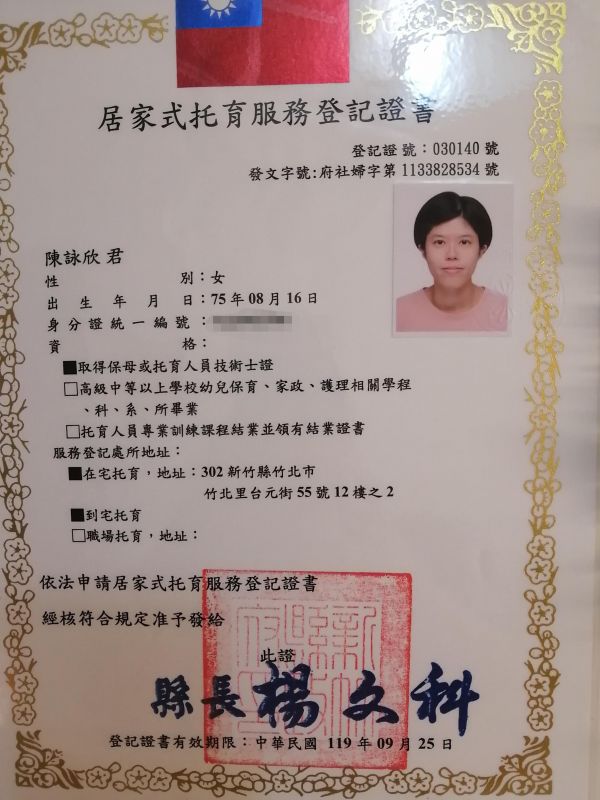 居家式托育服務登記證書
登記證號：030140 號
發文字號:府社婦字第 1133828534 號
陳詠欣 君
性別：女
出生年月日：75 年 08 月 16 日
身分證統一編號：
資格：
■取得保母或托育人員技術士證
□高級中等以上學校幼兒保育、家政、護理相關學程
、科、系、所畢業
□托育人員專業訓練課程結業並領有結業證書
服務登記處所地址：
■在宅托育，地址：302 新竹縣竹北市
竹北里台元街 55 號 12 樓之 2
■到宅托育
□職場托育，地址：
依法申請居家式托育服務登記證書
經核符合規定准予發給
此證
縣長 楊文科
登記證書有效期限：中華民國 119 年 09 月 25 日